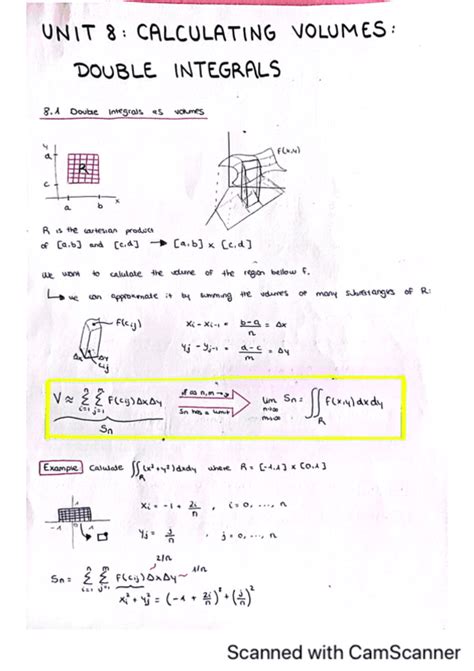 UNIT 8: CALCULATING VOLUMES:
DOUBLE INTEGRALS
8.1 Double integrals as volumes
y
d
R
c
a b x
f(x,y)
R is the cartesian product
of [a,b] and [c,d] → [a,b] x [c,d]
We want to calculate the volume of the region bellow f.
↳ we can approximate it by summing the volumes of many subrectangles of R:
f(cij) xi - xi-1 = b-a/n = Δx
Δx Δy yj - yj-1 = d-c/m = Δy
cij
V ≈ Σ Σ f(cij) Δx Δy if as n,m → ∞ lim Sn = ∬ f(x,y) dx dy
i=1 j=1 Sn has a limit n→∞ m→∞ R
Sn
Example Calculate ∬ (x²+y²) dx dy where R = [-1,1] x [0,1]
R
-1 1 xi = -1 + 2i/n , i = 0, ..., n
yj = j/n , j = 0, ..., n
2/n
Sn = Σ Σ f(cij) Δx Δy 1/n
i=1 j=1 xi² + yj² = (-1 + 2i/n)² + (j/n)²
Scanned with CamScanner